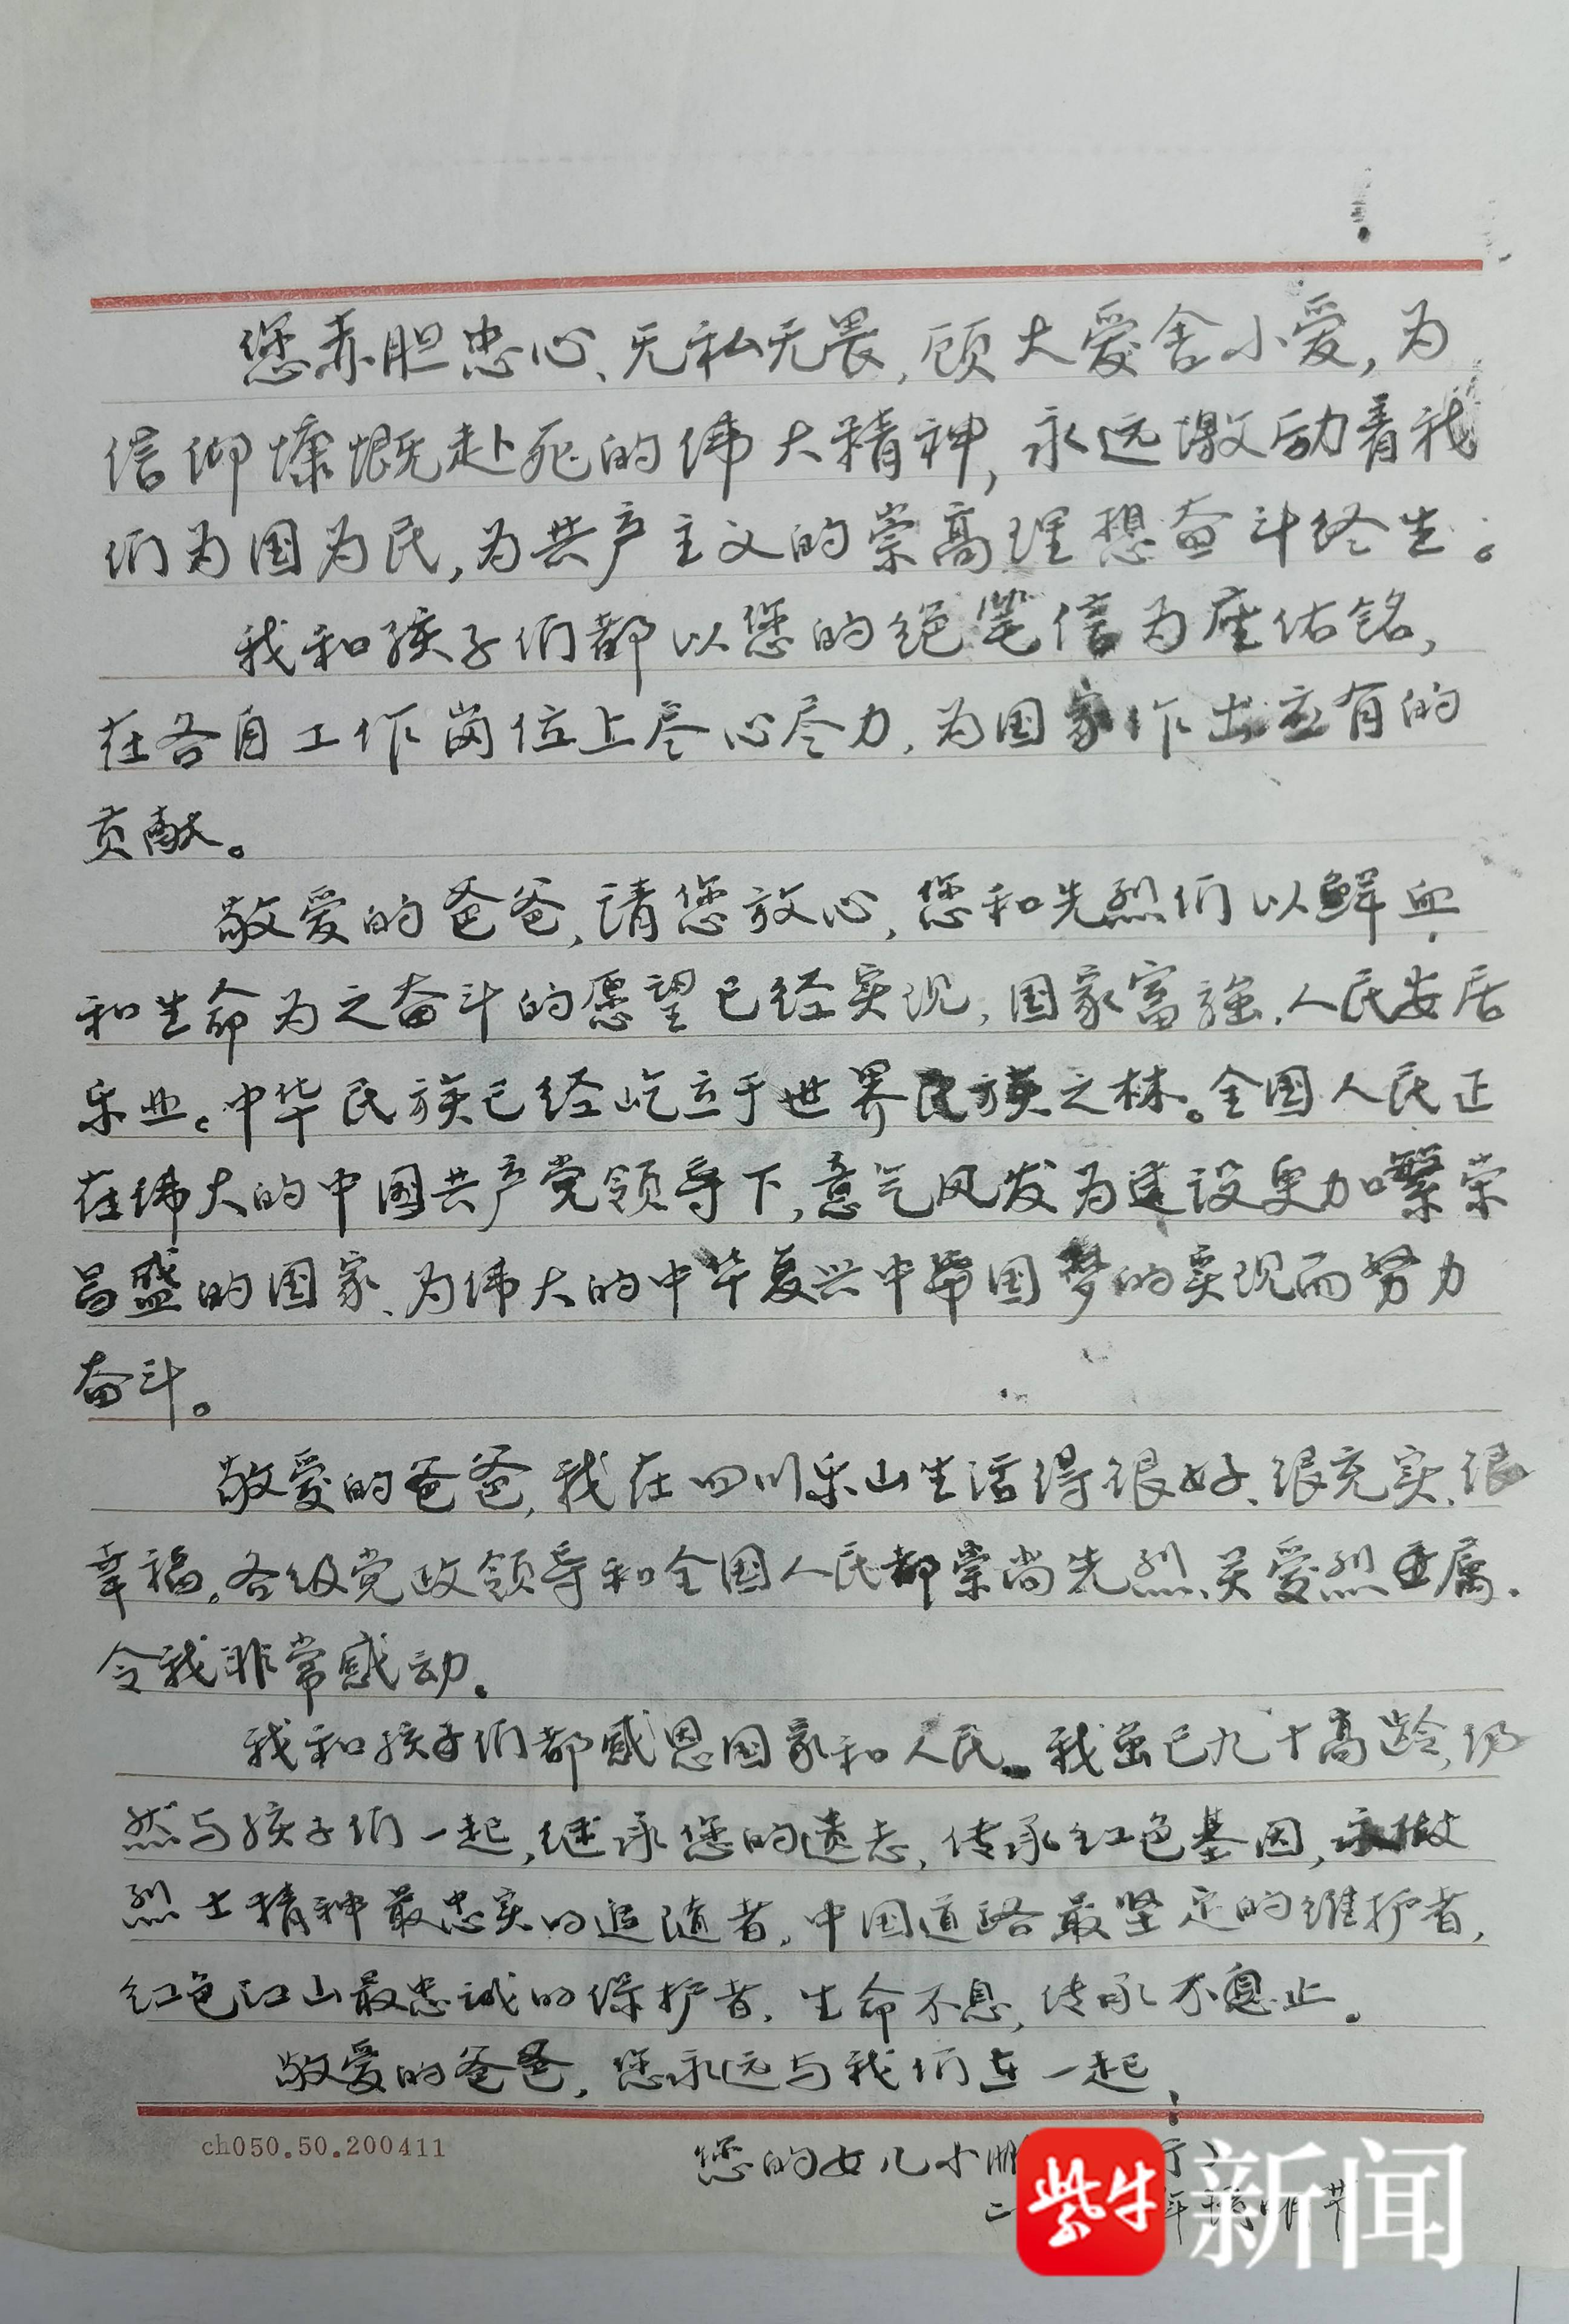 您赤胆忠心、无私无畏,顾大爱舍小爱,为
信仰慷慨赴死的伟大精神,永远激励着我
们为国为民,为共产主义的崇高理想奋斗终生。
我和孩子们都以您的绝笔信为座佑铭,
在各自工作岗位上尽心尽力,为国家作出应有的
贡献。
敬爱的爸爸,请您放心,您和先烈们以鲜血
和生命为之奋斗的愿望已经实现,国家富强、人民安居
乐业。中华民族已经屹立于世界民族之林。全国人民正
在伟大的中国共产党领导下,意气风发为建设更加繁荣
昌盛的国家、为伟大的中华复兴中国梦的实现而努力
奋斗。
敬爱的爸爸,我在四川乐山生活得很好、很充实、很
幸福。各级党政领导和全国人民都崇尚先烈、关爱烈属,
令我非常感动。
我和孩子们都感恩国家和人民。我虽已九十高龄,仍
然与孩子们一起,继承您的遗志,传承红色基因,永做
烈士精神最忠实的追随者,中国道路最坚定的维护者,
红色江山最忠诚的保护者,生命不息,传承不息止。
敬爱的爸爸,您永远与我们在一起!
ch050.50.200411
您的女儿小
二 年清明节
紫牛新闻